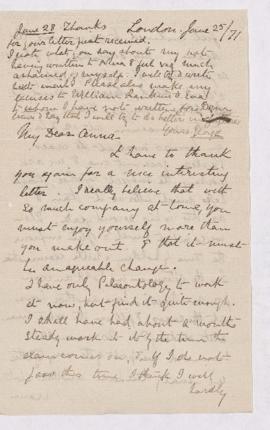 June 28 Thanks
London June 25/71
for your letter just received.
I note what you say about my not
having written to Alma & feel very much
ashamed of myself. I will try & write
next mail. Please also make my
excuses to William
to whom I have not written for
& say that I will try to do better in
Yours George
My Dear Anna.
I have to thank
you again for a nice interesting
letter. I really believe that with
so much company at home, you
must enjoy yourself more than
you make out & that it must
be an agreeable change.
I have only Palaeontology, to work
at now, but find it quite enough.
I shall have had about a months
steady work at it by the time the
exam comes on, & if I do not
pass this time I think I will
hardly